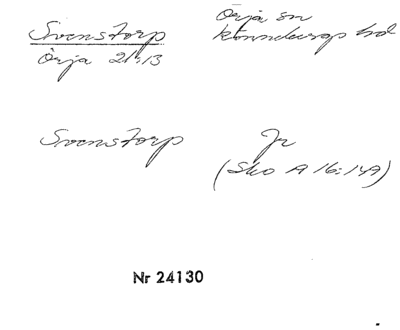 Svenstorp
Örja 21:13
Örja sn
Rönnebergs hd
Svenstorp
Jr
(Sko A 16:149)
Nr 24130